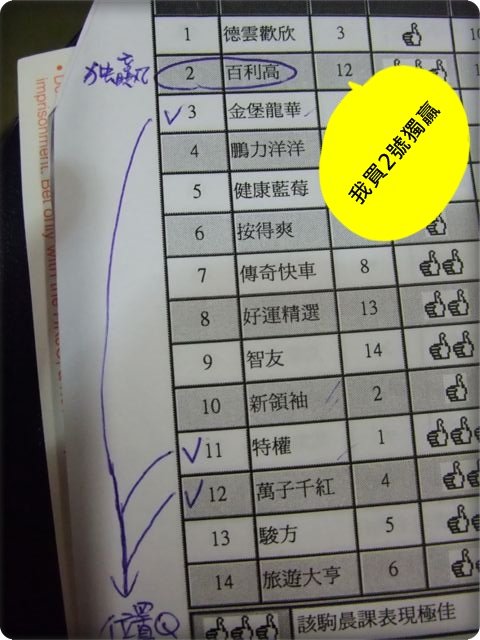 1 德雲歡欣 3 10
独贏 2 百利高 12 1
✓3 金堡龍華
4 鵬力洋洋
5 健康藍莓
6 按得爽
7 傳奇快車 8
8 好運精選 13
9 智友 14
10 新領袖 2
✓11 特權 1
✓12 萬子千紅 4
13 駿方 5
14 旅遊大亨 6
位置Q
該駒晨課表現極佳
我買2號獨贏
imprisonment. Bet only with the